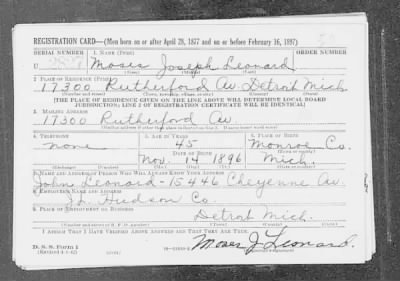 REGISTRATION CARD—(Men born on or after April 28, 1877 and on or before February 16, 1897)
SERIAL NUMBER 1. NAME (Print) ORDER NUMBER
U Moses Joseph Leonard
(First) (Middle) (Last)
2. PLACE OF RESIDENCE (Print)
17300 Rutherford Av Detroit Mich
(Number and street) (Town, township, village, or city) (County) (State)
[THE PLACE OF RESIDENCE GIVEN ON THE LINE ABOVE WILL DETERMINE LOCAL BOARD
JURISDICTION; LINE 2 OF REGISTRATION CERTIFICATE WILL BE IDENTICAL]
3. MAILING ADDRESS
17300 Rutherford Av
4. TELEPHONE 5. AGE IN YEARS 6. PLACE OF BIRTH
none 45 Monroe Co.
DATE OF BIRTH
Nov. 14 1896 Mich.
(Exchange) (Number) (Mo.) (Day) (Yr.) (State or country)
7. NAME AND ADDRESS OF PERSON WHO WILL ALWAYS KNOW YOUR ADDRESS
John Leonard-15446 Cheyenne Av.
8. EMPLOYER'S NAME AND ADDRESS
J.L. Hudson Co.
9. PLACE OF EMPLOYMENT OR BUSINESS
Detroit Mich.
I AFFIRM THAT I HAVE VERIFIED ABOVE ANSWERS AND THAT THEY ARE TRUE.
D. S. S. Form 1
Moses J. Leonard.